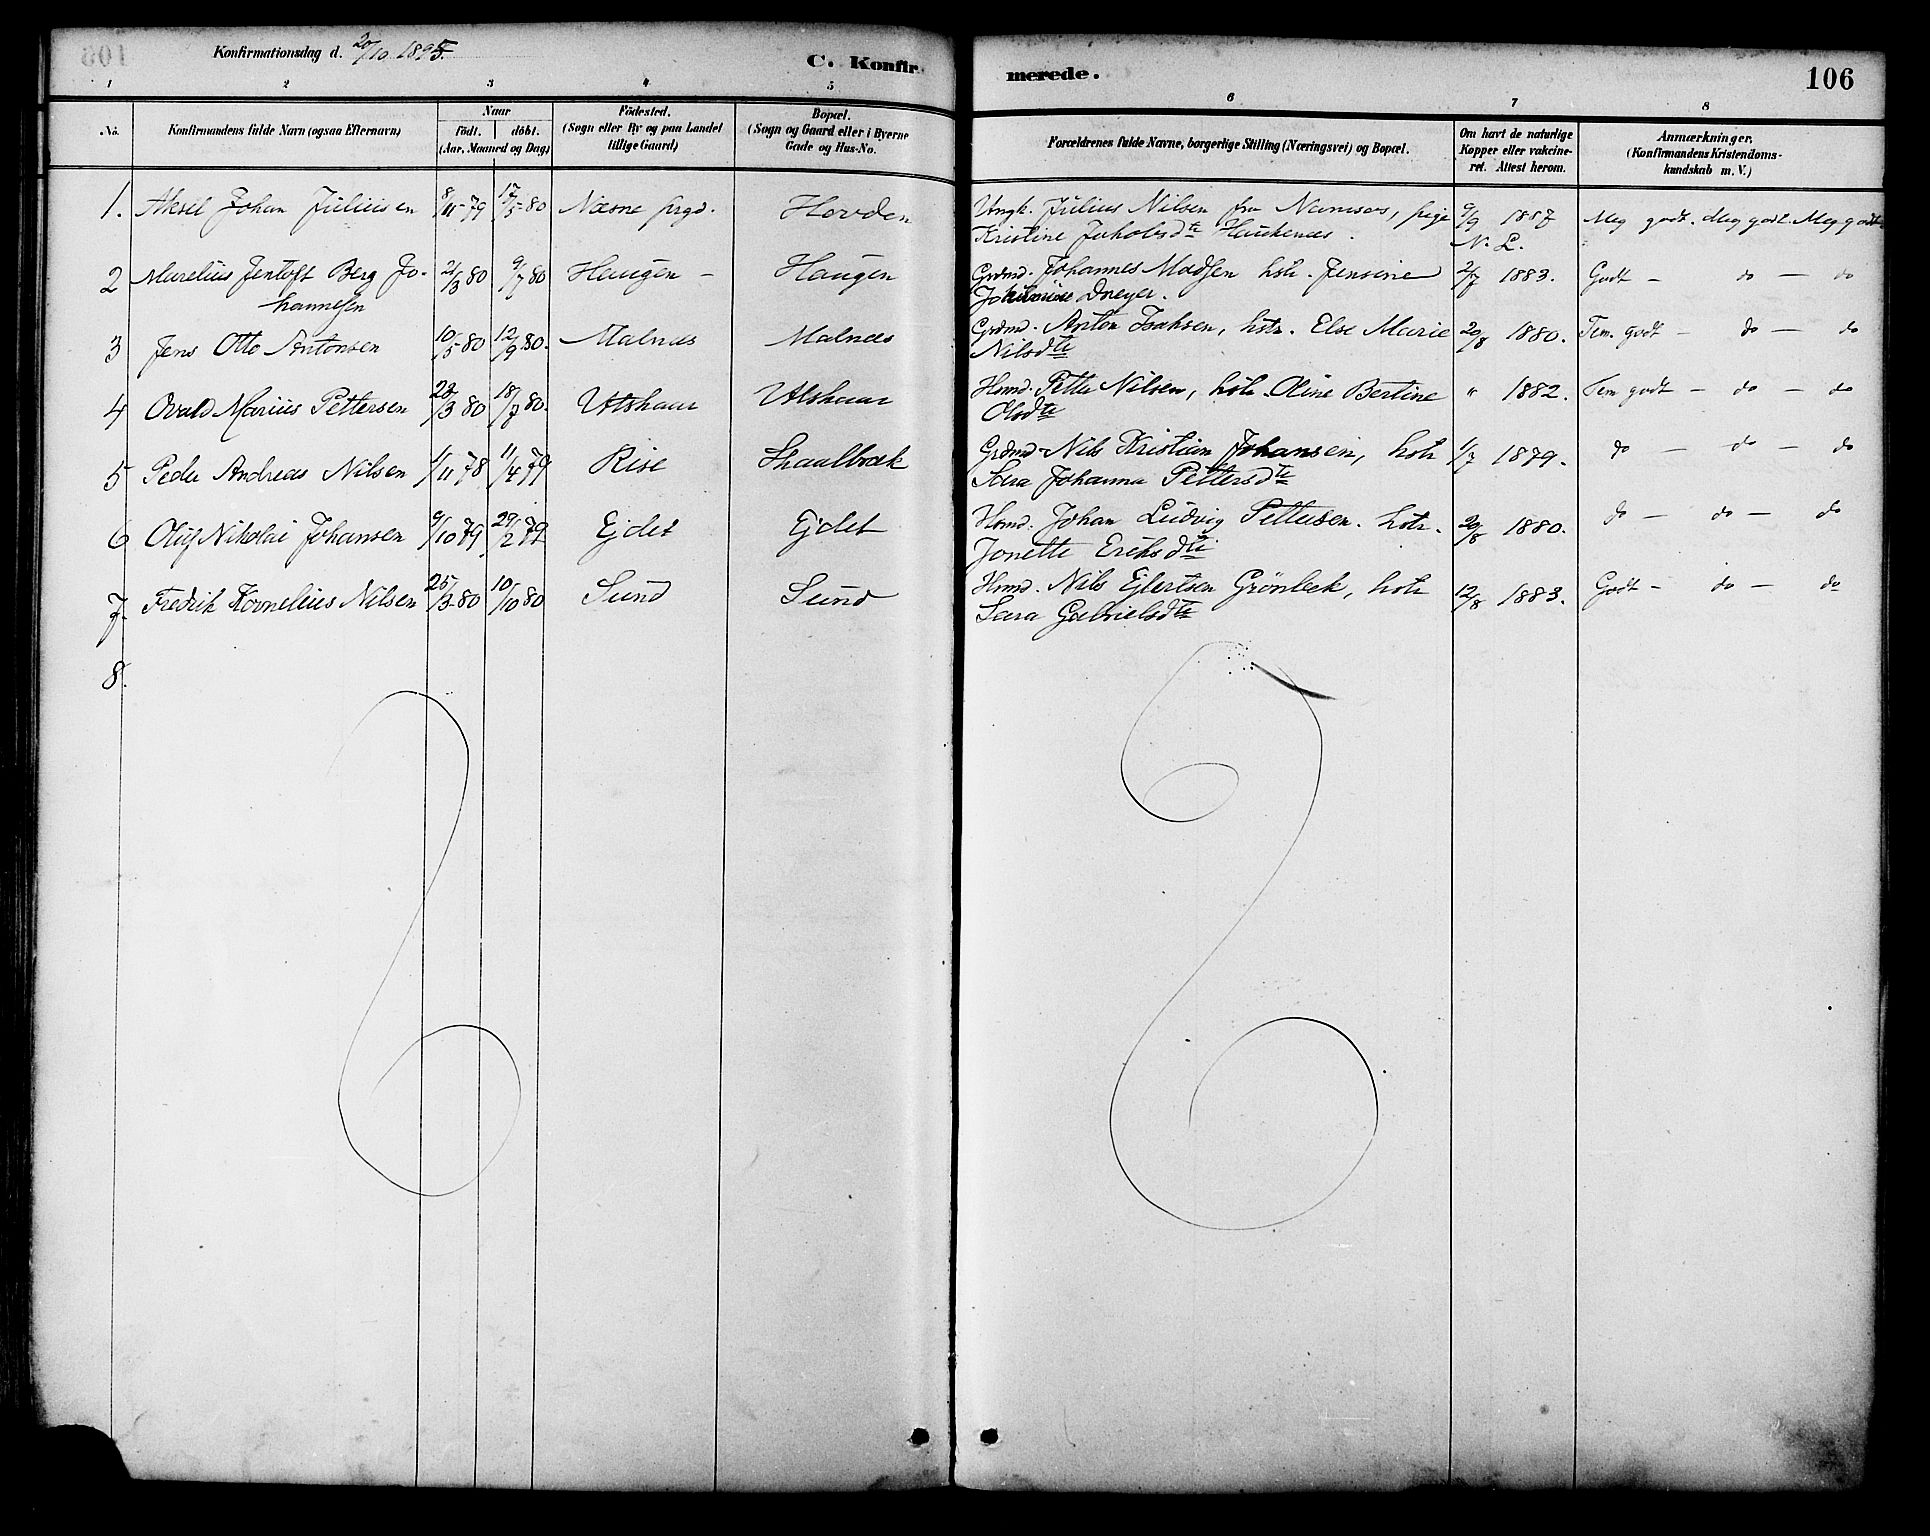 Konfirmationsdag d. 20/10 1895.
C. Konfir-
merede.
106
1 2 3 4 5 6 7 8
No.
Konfirmandens fulde Navn (ogsaa Efternavn)
Naar
födt. döbt.
(Aar, Maaned og Dag)
Födested.
(Sogn eller By og paa Landet
tillige Gaard)
Bopæl.
(Sogn og Gaard eller i Byerne
Gade og Hus-No.
Forældrenes fulde Navne, borgerlige Stilling (Næringsvei) og Bopæl.
Om havt de naturlige
Kopper eller vakcine-
ret. Attest herom.
Anmærkninger.
(Konfirmandens Kristendoms-
kundskab m. V.)
1. Aksel Johan Juliusen 8/11 79 17/5 80 Næsne prgd. Hovden Ungk. Julius Nilsen fra Namsos, pige 9/9 1887 Meg godt. Meg godt. Meg godt
Kristine Jakobsdtr Haukenæs. N. L.
2 Marelius Jentoft Berg Jo- 21/3 80 9/7 80 Haugen – Haugen Grdmd. Johannes Madsen hstr. Jensine 2/7 1883. Godt – do – do
hannesen Dreyer.
3 Jens Otto Antonsen 10/5 80 12/9 80. Malnæs Malnæs Grdmd. Anton Isaksen, hstr. Else Marie 20/8 1880. Tem. godt – do – do
Nilsdtr
4 Ovald Marius Pettersen 23/3 80 18/7 80. Utskaar Utskaar Hmd. Petter Nilsen, hstr. Oline Bertine " 1882. Tem godt – do – do
Olsdtr
5 Peder Andreas Nilsen 1/11 78 11/4 79 Rise Skaalbræk Grdmd. Nils Kristian Johansen, hstr 1/7 1879. do – do – do
Sara Johanna Pettersdtr
6 Oluf Nikolai Johansen 9/10 79 29/2 79 Ejdet Ejdet Hmd. Johan Ludvig Pettersen. hstr. 20/8 1880. do – do – do
Jonette Eriksdtr
7. Fredrik Kornelius Nilsen 25/3 80 10/10 80 Sund Sund Hmd. Nils Ejlertsen Grönbek, hstr 12/8 1883. Godt – do – do
Sara Gabrielsdtr
8.